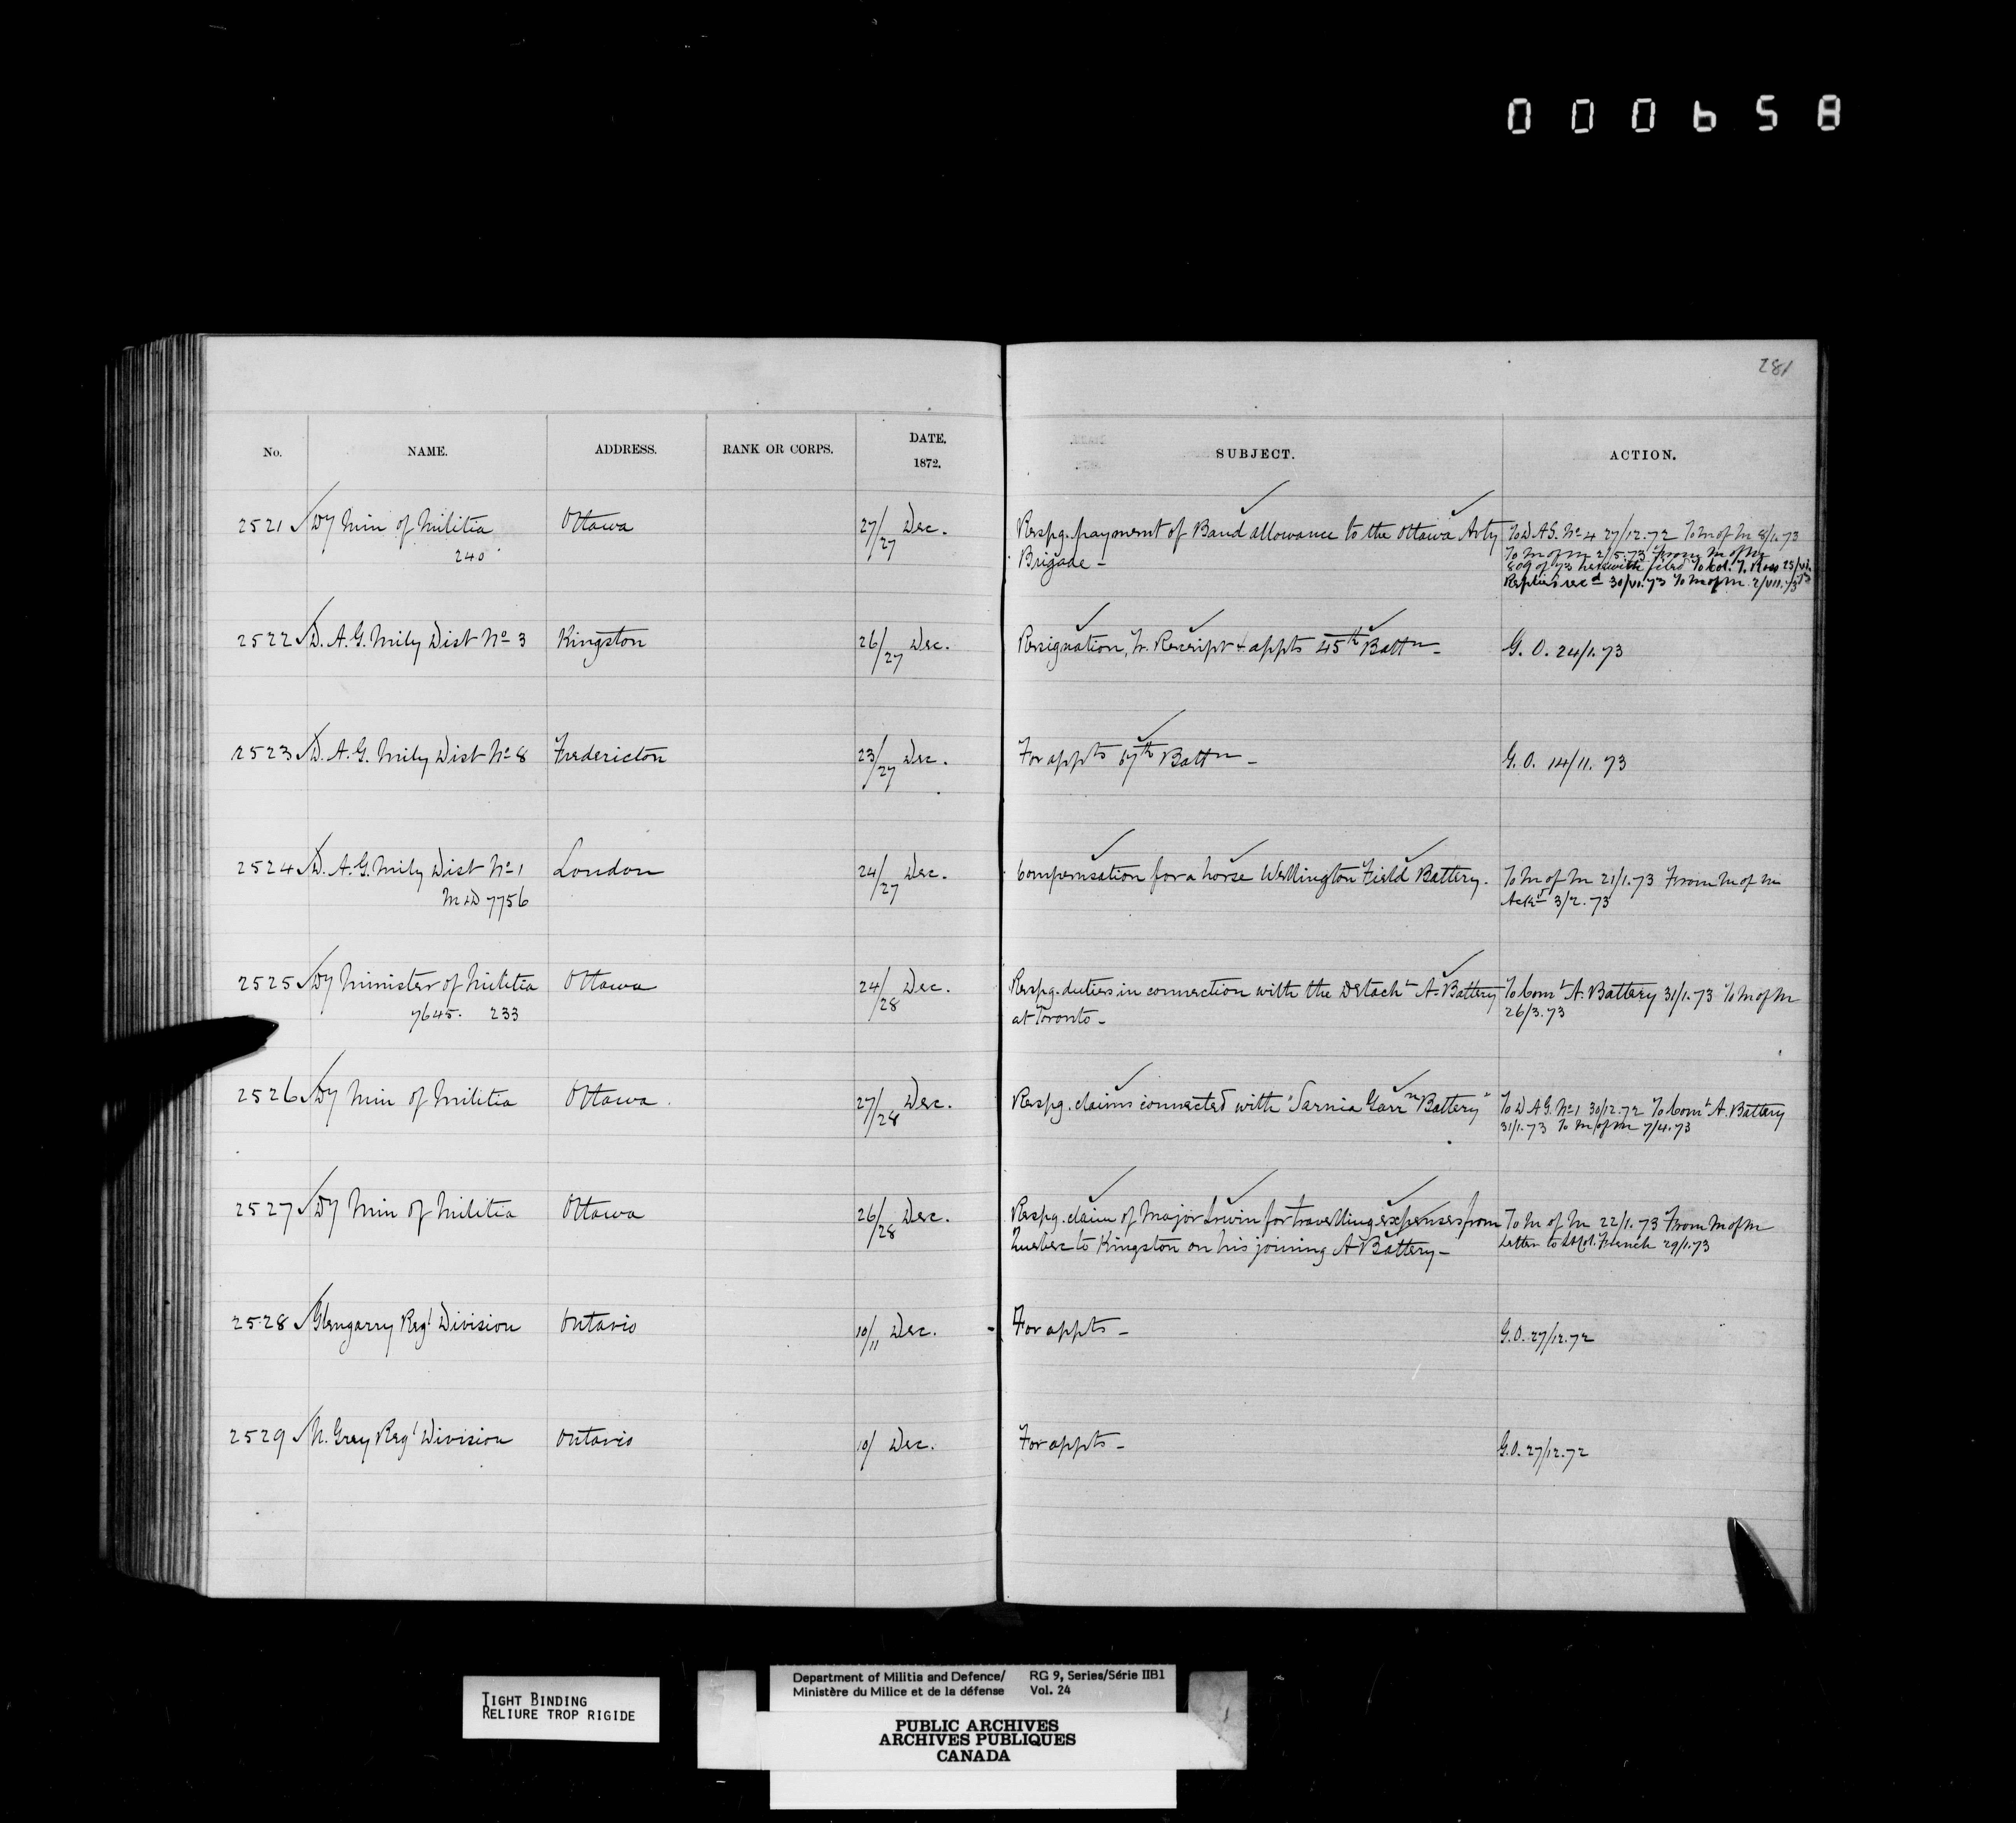 000658
281
No. NAME. ADDRESS. RANK OR CORPS. DATE. 1872. SUBJECT. ACTION.
2521 Dy Min of Militia Ottawa 27/27 Dec. Respg. payment of Band allowance to the Ottawa Arty To D A G. No 4 27/12.72 To M of M 8/1.73
240 Brigade - To M of M 2/5.73 From M of M
809 of 73 herewith filed To Col. T. Ross 25/VI.
Replies recd 30/VI.73 To M of M. 2/VII.73
2522 D. A. G. Mily Dist No 3 Kingston 26/27 Dec. Resignation, Tr. Receipt & appts 45th Battn - G. O. 24/1.73
2523 D. A. G. Mily Dist No 8 Fredericton 23/27 Dec. For appts 67th Battn - G. O. 14/11.73
2524 D. A. G. Mily Dist No 1 London 24/27 Dec. Compensation for a horse Wellington Field Battery. To M of M 21/1.73 From M of M
M & D 7756 Ackd 3/2.73
2525 Dy Minister of Militia Ottawa 24/28 Dec. Respg. duties in connection with the Detacht A. Battery To Comt A. Battery 31/1.73 To M of M
7645. 233 at Toronto - 26/3.73
2526 Dy Min of Militia Ottawa. 27/28 Dec. Respg. claims connected with "Sarnia Garrn Battery" To D A G. No 1 30/12.72 To Comt A. Battery
31/1.73 To M of M 7/4.73
2527 Dy Min of Militia Ottawa 26/28 Dec. Respg. claim of Major Irwin for travelling expenses from To M of M 22/1.73 From M of M
Quebec to Kingston on his joining A Battery - Letter to Lt Col. French 29/1.73
2528 Glengarry Regl Division Ontario 10/11 Dec. For appts - G.O. 27/12.72
2529 N. Grey Regl Division Ontario 10/ Dec. For appts - G.O. 27/12.72
TIGHT BINDING
RELIURE TROP RIGIDE
Department of Militia and Defence/ RG 9, Series/Série IIB1
Ministère du Milice et de la défense Vol. 24
PUBLIC ARCHIVES
ARCHIVES PUBLIQUES
CANADA